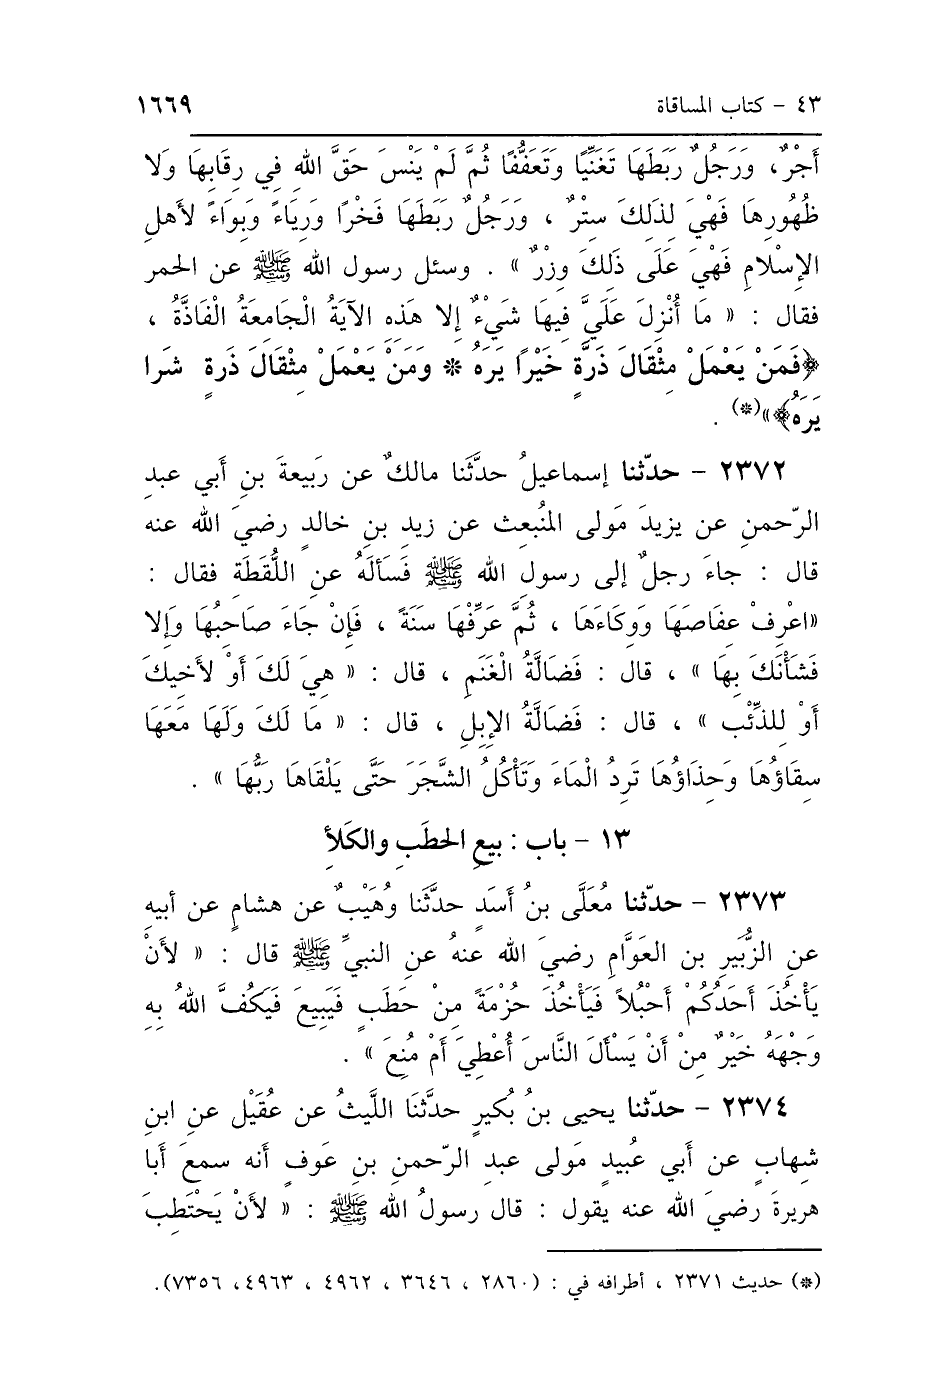 ٤٣ - كتاب المساقاة ١٦٦٩
أَجْرٌ، وَرَجُلٌ رَبَطَهَا تَغَنِّيًا وَتَعَفُّفًا ثُمَّ لَمْ يَنْسَ حَقَّ اللهِ فِي رِقَابِهَا وَلَا
ظُهُورِهَا فَهْيَ لِذَلِكَ سِتْرٌ ، وَرَجُلٌ رَبَطَهَا فَخْرًا وَرِيَاءً وَبِوَاءً لأَهلِ
الإِسْلَامِ فَهْيَ عَلَى ذَلِكَ وِزْرٌ » . وسئل رسول الله ﷺ عن الحمر
فقال : « مَا أُنْزِلَ عَلَيَّ فِيهَا شَيْءٌ إلا هَذِهِ الآيَةُ الْجَامِعَةُ الْفَاذَّةُ ،
﴿فَمَنْ يَعْمَلْ مِثْقَالَ ذَرَّةٍ خَيْرًا يَرَهُ * وَمَنْ يَعْمَلْ مِثْقَالَ ذَرةٍ شَرا
يَرَهُ﴾»(*) .
٢٣٧٢ - حدّثنا إسماعيلُ حدَّثَنا مالكٌ عن رَبيعةَ بنِ أَبي عبدِ
الرّحمنِ عن يزيدَ مَولى المنُبعث عن زيدِ بنِ خالدٍ رضيَ الله عنه
قال : جاءَ رجلٌ إلى رسولِ الله ﷺ فَسَألَهُ عنِ اللُّقَطَةِ فقال :
«اعْرِفْ عِفَاصَهَا وَوِكَاءَهَا ، ثُمَّ عَرِّفْهَا سَنَةً ، فَإِنْ جَاءَ صَاحِبُهَا وَإِلا
فَشَأْنَكَ بِهَا » ، قال : فَضَالَّةُ الْغَنَمِ ، قال : « هِيَ لَكَ أَوْ لأَخِيكَ
أَوْ لِلذِّئْبِ » ، قال : فَضَالَّةُ الإِبِلِ ، قال : « مَا لَكَ وَلَهَا مَعَهَا
سِقَاؤُهَا وَحِذَاؤُهَا تَرِدُ الْمَاءَ وَتَأْكُلُ الشَّجَرَ حَتَّى يَلْقَاهَا رَبُّهَا » .
١٣ - باب : بيعِ الحطَبِ والكَلأِ
٢٣٧٣ - حدّثنا مُعَلَّى بنُ أَسَدٍ حدَّثَنا وُهَيْبٌ عن هشامٍ عن أبيهِ
عنِ الزُّبَيرِ بن العَوَّامِ رضيَ الله عنهُ عنِ النبيِّ ﷺ قال : « لأَنْ
يَأْخُذَ أَحَدُكُمْ أَحْبُلاً فَيَأْخُذَ حُزْمَةً مِنْ حَطَبٍ فَيَبِيعَ فَيَكُفَّ اللهُ بِهِ
وَجْهَهُ خَيْرٌ مِنْ أَنْ يَسْأَلَ النَّاسَ أُعْطِيَ أَمْ مُنِعَ » .
٢٣٧٤ - حدّثنا يحيى بنُ بُكَيرٍ حدَّثَنَا اللَّيثُ عن عُقَيْل عنِ ابنِ
شِهابٍ عن أَبي عُبيدٍ مَولى عبدِ الرّحمنِ بنِ عَوفٍ أنه سمعَ أبا
هريرةَ رضيَ الله عنه يقول : قال رسولُ الله ﷺ : « لأَنْ يَحْتَطِبَ
(*) حديث ٢٣٧١ ، أطرافه في : (٢٨٦٠ ، ٣٦٤٦ ، ٤٩٦٢ ، ٤٩٦٣، ٧٣٥٦).